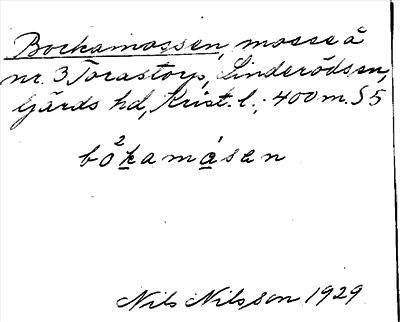 Bockamossen, mosse å
nr. 3 Torastorp, Linderödsen,
Gärds hd, Krist. l.; 400 m. S 5
bo²kamåsen
Nils Nilsson 1929